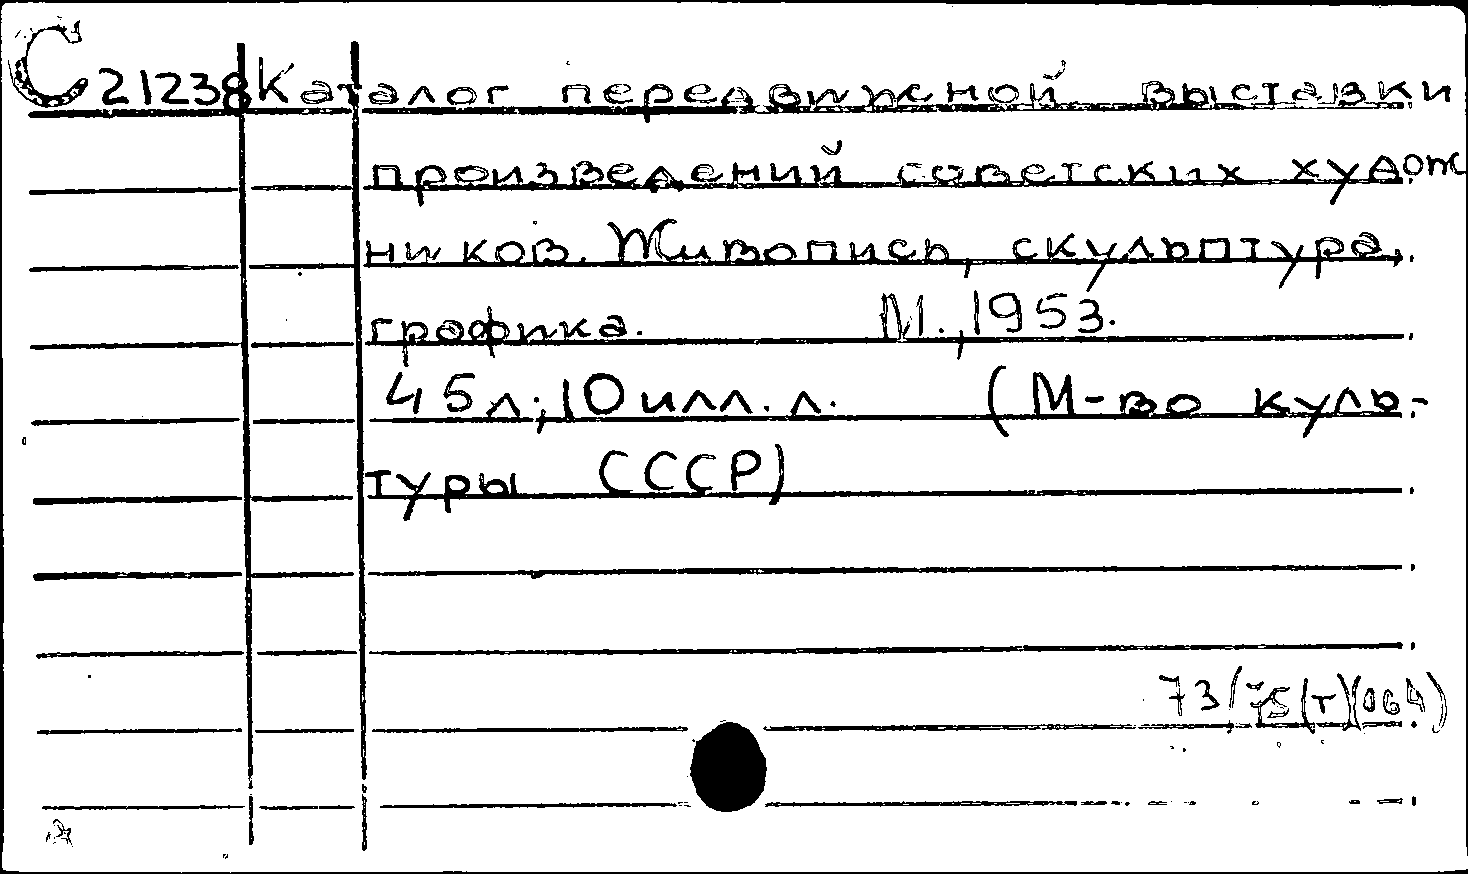 С 21238 Каталог передвижной выставки
произведений советских худож
ников. Живопись, скульптура,
графика. М., 1953.
45л.; 10 илл. л. (М-во куль-
туры СССР)
73/75(т)(064)